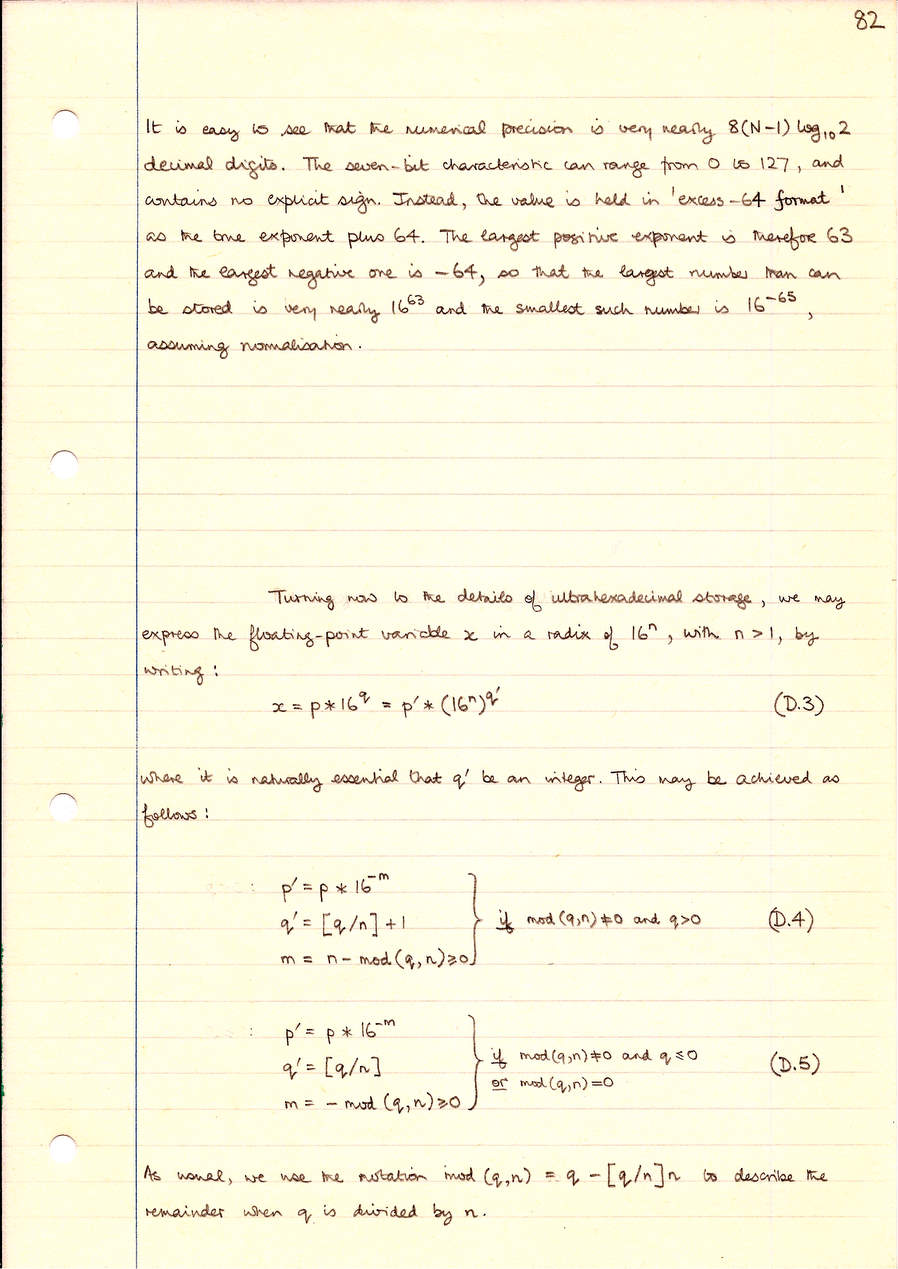 82
It is easy to see that the numerical precision is very nearly 8(N-1) log₁₀2
decimal digits. The seven-bit characteristic can range from 0 to 127, and
contains no explicit sign. Instead, the value is held in 'excess-64 format'
as the true exponent plus 64. The largest positive exponent is therefore 63
and the largest negative one is -64, so that the largest number than can
be stored is very nearly 16⁶³ and the smallest such number is 16⁻⁶⁵,
assuming normalisation.
Turning now to the details of ultrahexadecimal storage, we may
express the floating-point variable x in a radix of 16ⁿ, with n > 1, by
writing:
x = p * 16^q = p′ * (16ⁿ)^q′ (D.3)
where it is naturally essential that q′ be an integer. This may be achieved as
follows:
: p′ = p * 16^-m
q′ = [q/n] + 1 if mod(q,n) ≠ 0 and q > 0 (D.4)
m = n - mod(q,n) ≥ 0
: p′ = p * 16^-m
q′ = [q/n] if mod(q,n) ≠ 0 and q ≤ 0 (D.5)
or mod(q,n) = 0
m = - mod(q,n) ≥ 0
As usual, we use the notation mod(q,n) = q - [q/n]n to describe the
remainder when q is divided by n.